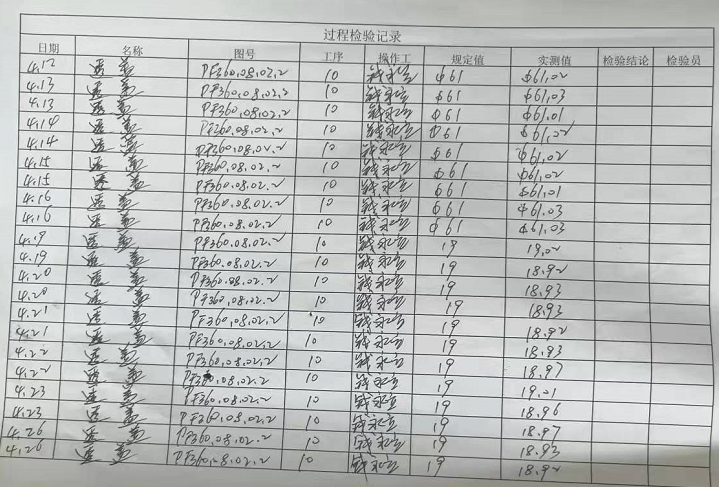 过程检验记录
日期 名称 图号 工序 操作工 规定值 实测值 检验结论 检验员
4.12 盖 PF360.08.02.2 10 钱永宝 φ61 φ61.02
4.13 盖 PF360.08.02.2 10 钱永宝 φ61 φ61.03
4.13 盖 PF360.08.02.2 10 钱永宝 φ61 φ61.01
4.14 盖 PF360.08.02.2 10 钱永宝 φ61 φ61.02
4.14 盖 PF360.08.02.2 10 钱永宝 φ61 φ61.02
4.15 盖 PF360.08.02.2 10 钱永宝 φ61 φ61.02
4.15 盖 PF360.08.02.2 10 钱永宝 φ61 φ61.01
4.16 盖 PF360.08.02.2 10 钱永宝 φ61 φ61.03
4.16 盖 PF360.08.02.2 10 钱永宝 φ61 φ61.03
4.19 盖 PF360.08.02.2 10 钱永宝 19 19.02
4.19 盖 PF360.08.02.2 10 钱永宝 19 18.92
4.20 盖 PF360.08.02.2 10 钱永宝 19 18.93
4.20 盖 PF360.08.02.2 10 钱永宝 19 18.93
4.21 盖 PF360.08.02.2 10 钱永宝 19 18.92
4.21 盖 PF360.08.02.2 10 钱永宝 19 18.93
4.22 盖 PF360.08.02.2 10 钱永宝 19 18.97
4.22 盖 PF360.08.02.2 10 钱永宝 19 19.01
4.23 盖 PF360.08.02.2 10 钱永宝 19 18.96
4.23 盖 PF360.08.02.2 10 钱永宝 19 18.97
4.26 盖 PF360.08.02.2 10 钱永宝 19 18.93
4.26 盖 PF360.08.02.2 10 钱永宝 19 18.92